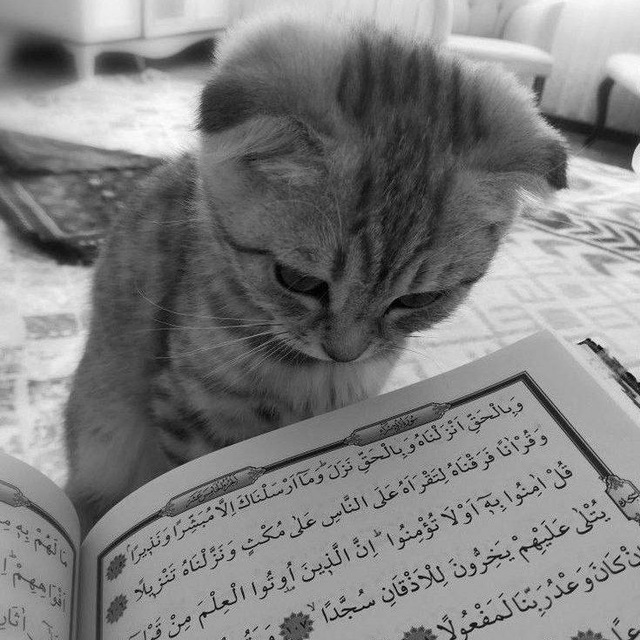 وَبِالْحَقِّ اَنْزَلْنَاهُ وَبِالْحَقِّ نَزَلَ وَمَٓا اَرْسَلْنَاكَ اِلَّا مُبَشِّرًا وَنَذِيرًا
وَقُرْاٰنًا فَرَقْنَاهُ لِتَقْرَاَهُ عَلَى النَّاسِ عَلٰى مُكْثٍ وَنَزَّلْنَاهُ تَنْزِيلًا
قُلْ اٰمِنُوا بِهٖٓ اَوْ لَا تُؤْمِنُوا اِنَّ الَّذِينَ اُوتُوا الْعِلْمَ مِنْ
يُتْلٰى عَلَيْهِمْ يَخِرُّونَ لِلْاَذْقَانِ سُجَّدًا ١٠٧
كَانَ وَعْدُ رَبِّنَا لَمَفْعُولًا
مَا لَهُمْ بِهٖ
اَفْوَاهِهِمْ